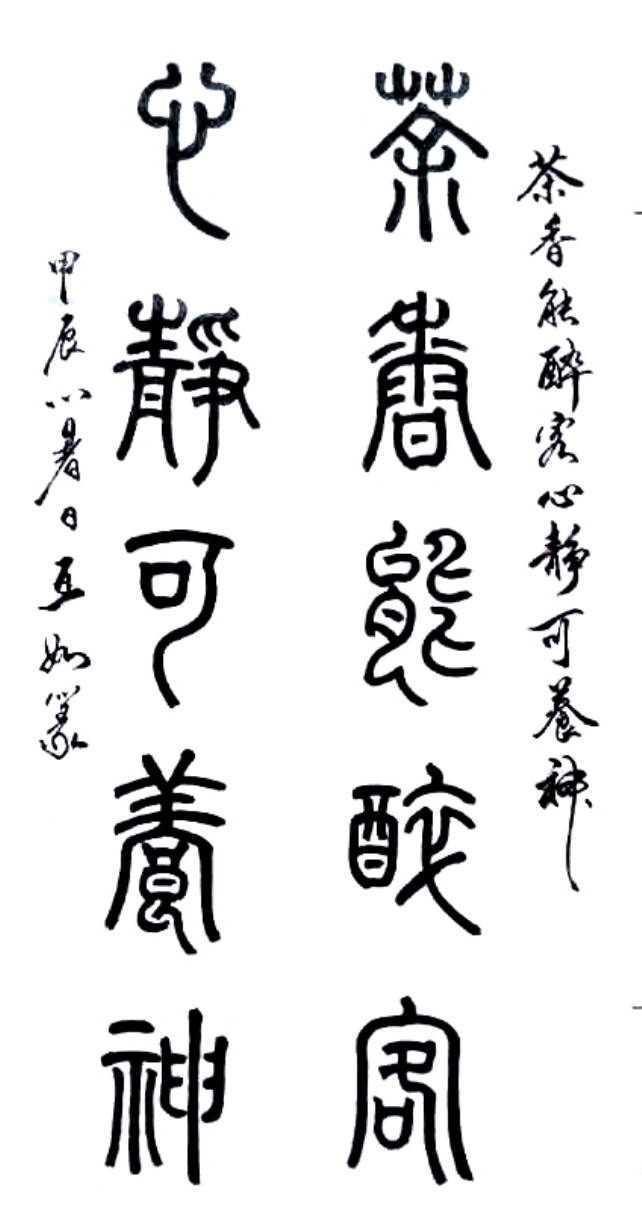 茶香能醉客心靜可養神
茶香能醉客
心靜可養神
甲辰小暑日互如篆